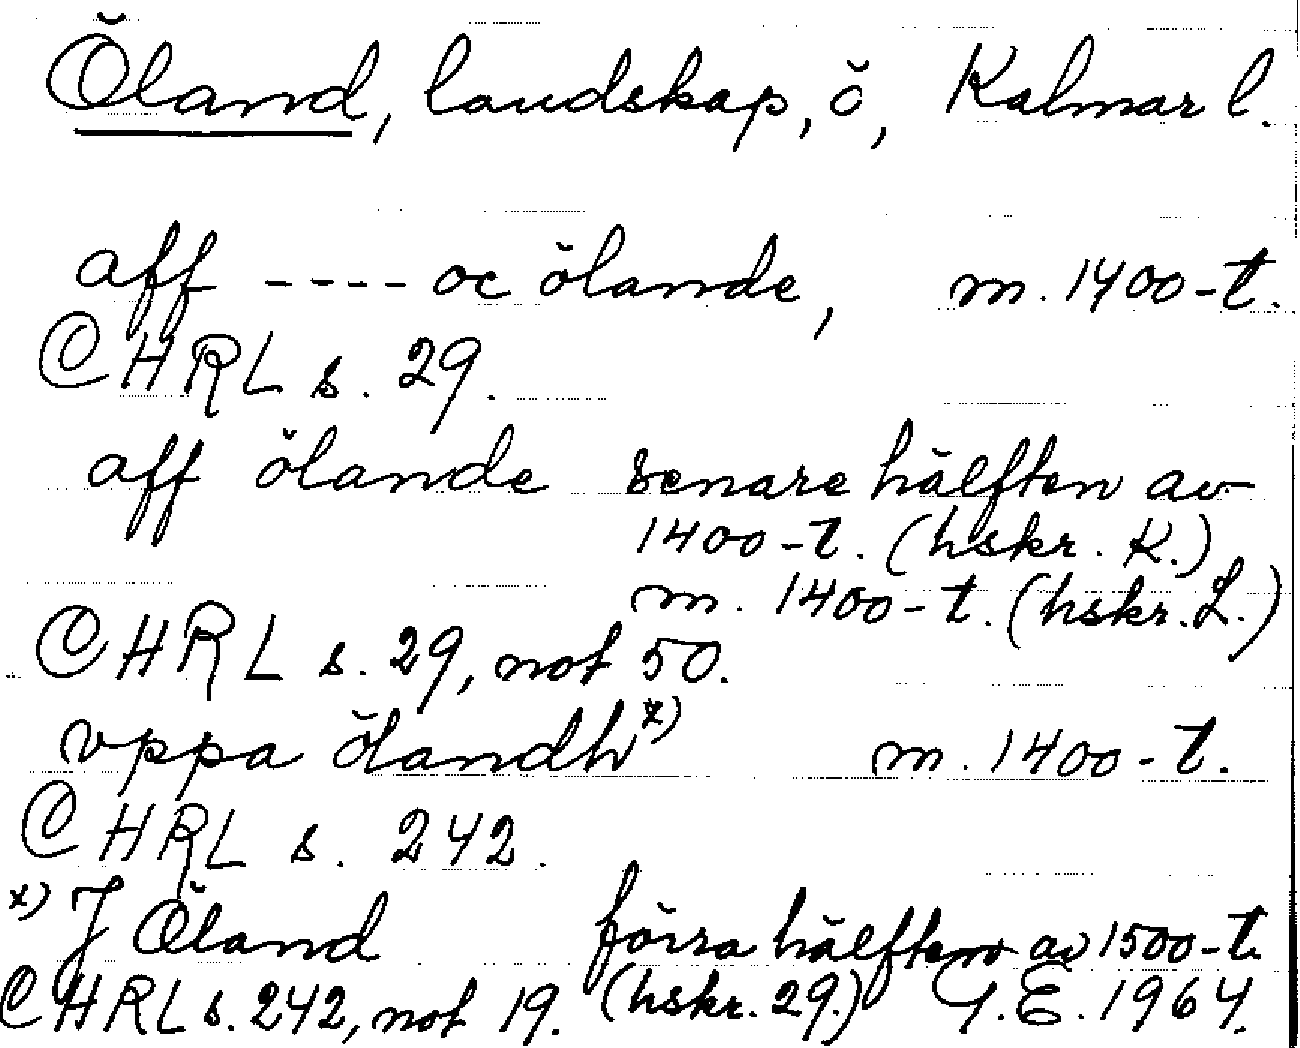 Öland, landskap, ö, Kalmar l.
aff ---- oc ölande, m. 1400-t.
CHRL s. 29.
aff ölande senare hälften av
1400-t. (hskr. K.)
m. 1400-t. (hskr. L.)
CHRL s. 29, not 50.
vppa ölandh x) m. 1400-t.
CHRL s. 242.
x) J Öland förra hälften av 1500-t.
CHRL s. 242, not 19. (hskr. 29.) G.E. 1964.